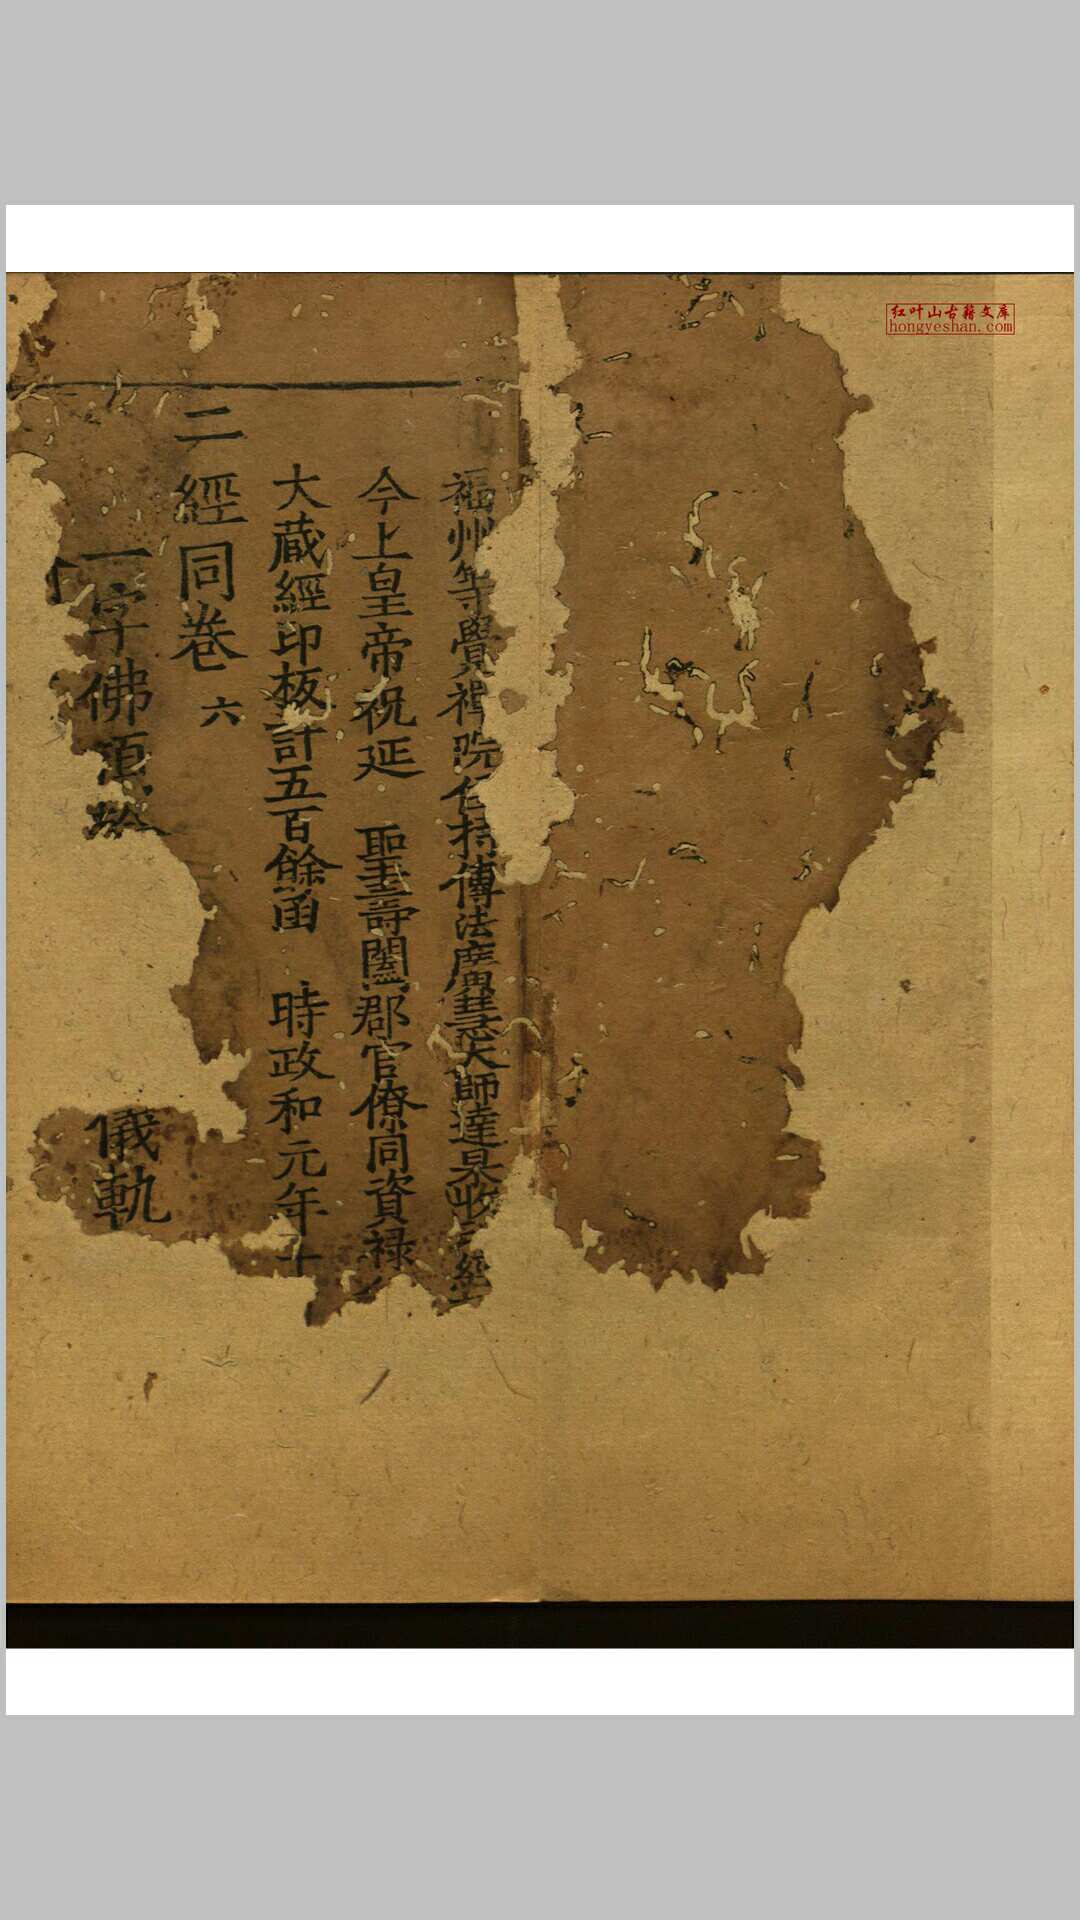 红叶山古籍文库
hongyeshan.com
福州等覺禪院住持傳法廣慧大師達杲收經
今上皇帝祝延 聖壽闔郡官僚同資祿
大藏經印板計五百餘函 時政和元年十
二經同卷 六
一字佛頂 儀軌